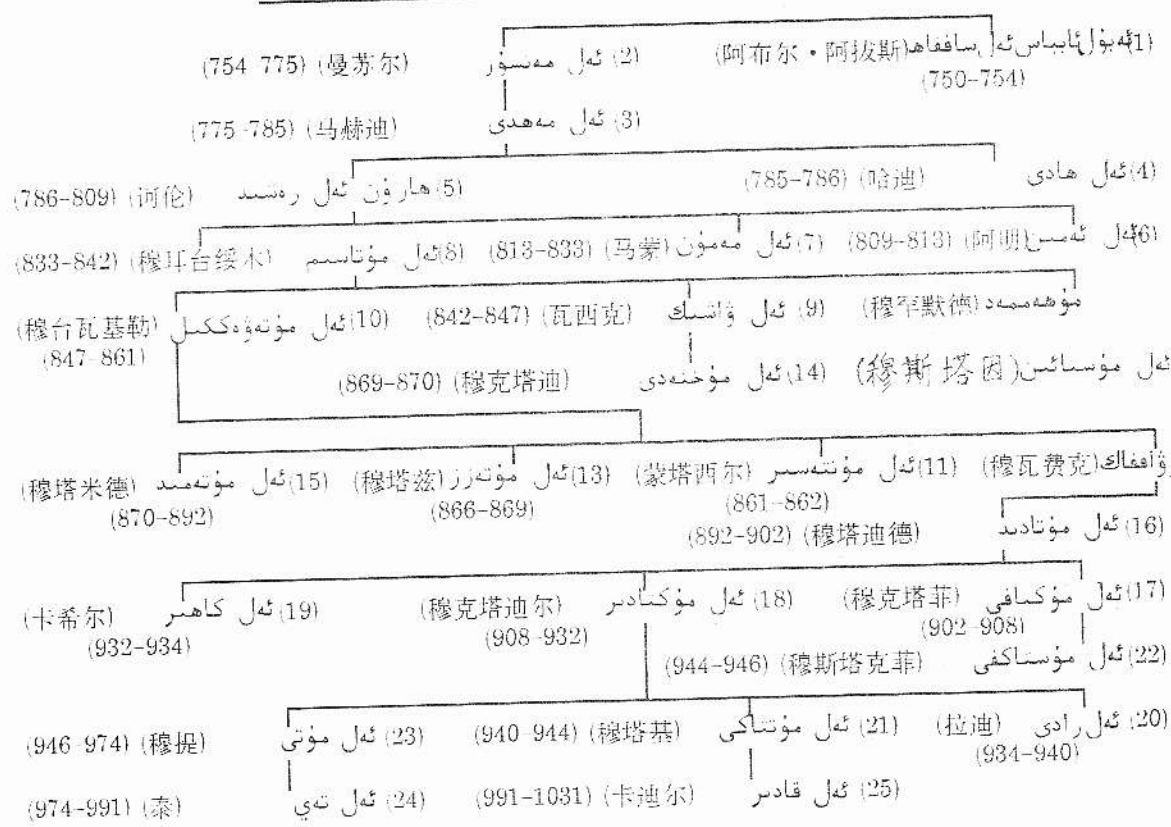 (1) ئەبۇل ئابباس ئەل ساففاھ (阿布尔・阿拔斯) (2) ئەل مەنسۇر (曼苏尔) (754-775)
(750-754)
(3) ئەل مەھدى (马赫迪) (775-785)
(4) ئەل ھادى (哈迪) (785-786) (5) ھارۇن ئەل رەشىد (诃伦) (786-809)
(6) ئەل ئەمىن (阿明) (809-813) (7) ئەل مەمۇن (马蒙) (813-833) (8) ئەل مۇتاسىم (穆耳台绥木) (833-842)
مۇھەممەد (穆罕默德) (9) ئەل ۋاسىك (瓦西克) (842-847) (10) ئەل مۇتەۋەككىل (穆台瓦基勒)
(847-861)
ئەل مۇستائىن (穆斯塔因) (14) ئەل مۇختەدى (穆克塔迪) (869-870)
ۋاففاك (穆瓦费克) (11) ئەل مۇنتەسىر (蒙塔西尔) (13) ئەل مۇتەزز (穆塔兹) (15) ئەل مۇتەمىد (穆塔米德)
(861-862) (866-869) (870-892)
(16) ئەل مۇتادىد (穆塔迪德) (892-902)
(17) ئەل مۇكتافى (穆克塔菲) (18) ئەل مۇكتادىر (穆克塔迪尔) (19) ئەل كاھىر (卡希尔)
(902-908) (908-932) (932-934)
(22) ئەل مۇستاكفى (穆斯塔克菲) (944-946)
(20) ئەل رادى (拉迪) (21) ئەل مۇتتاكى (穆塔基) (940-944) (23) ئەل مۇتى (穆提) (946-974)
(934-940)
(25) ئەل قادىر (卡迪尔) (991-1031) (24) ئەل تەي (泰) (974-991)